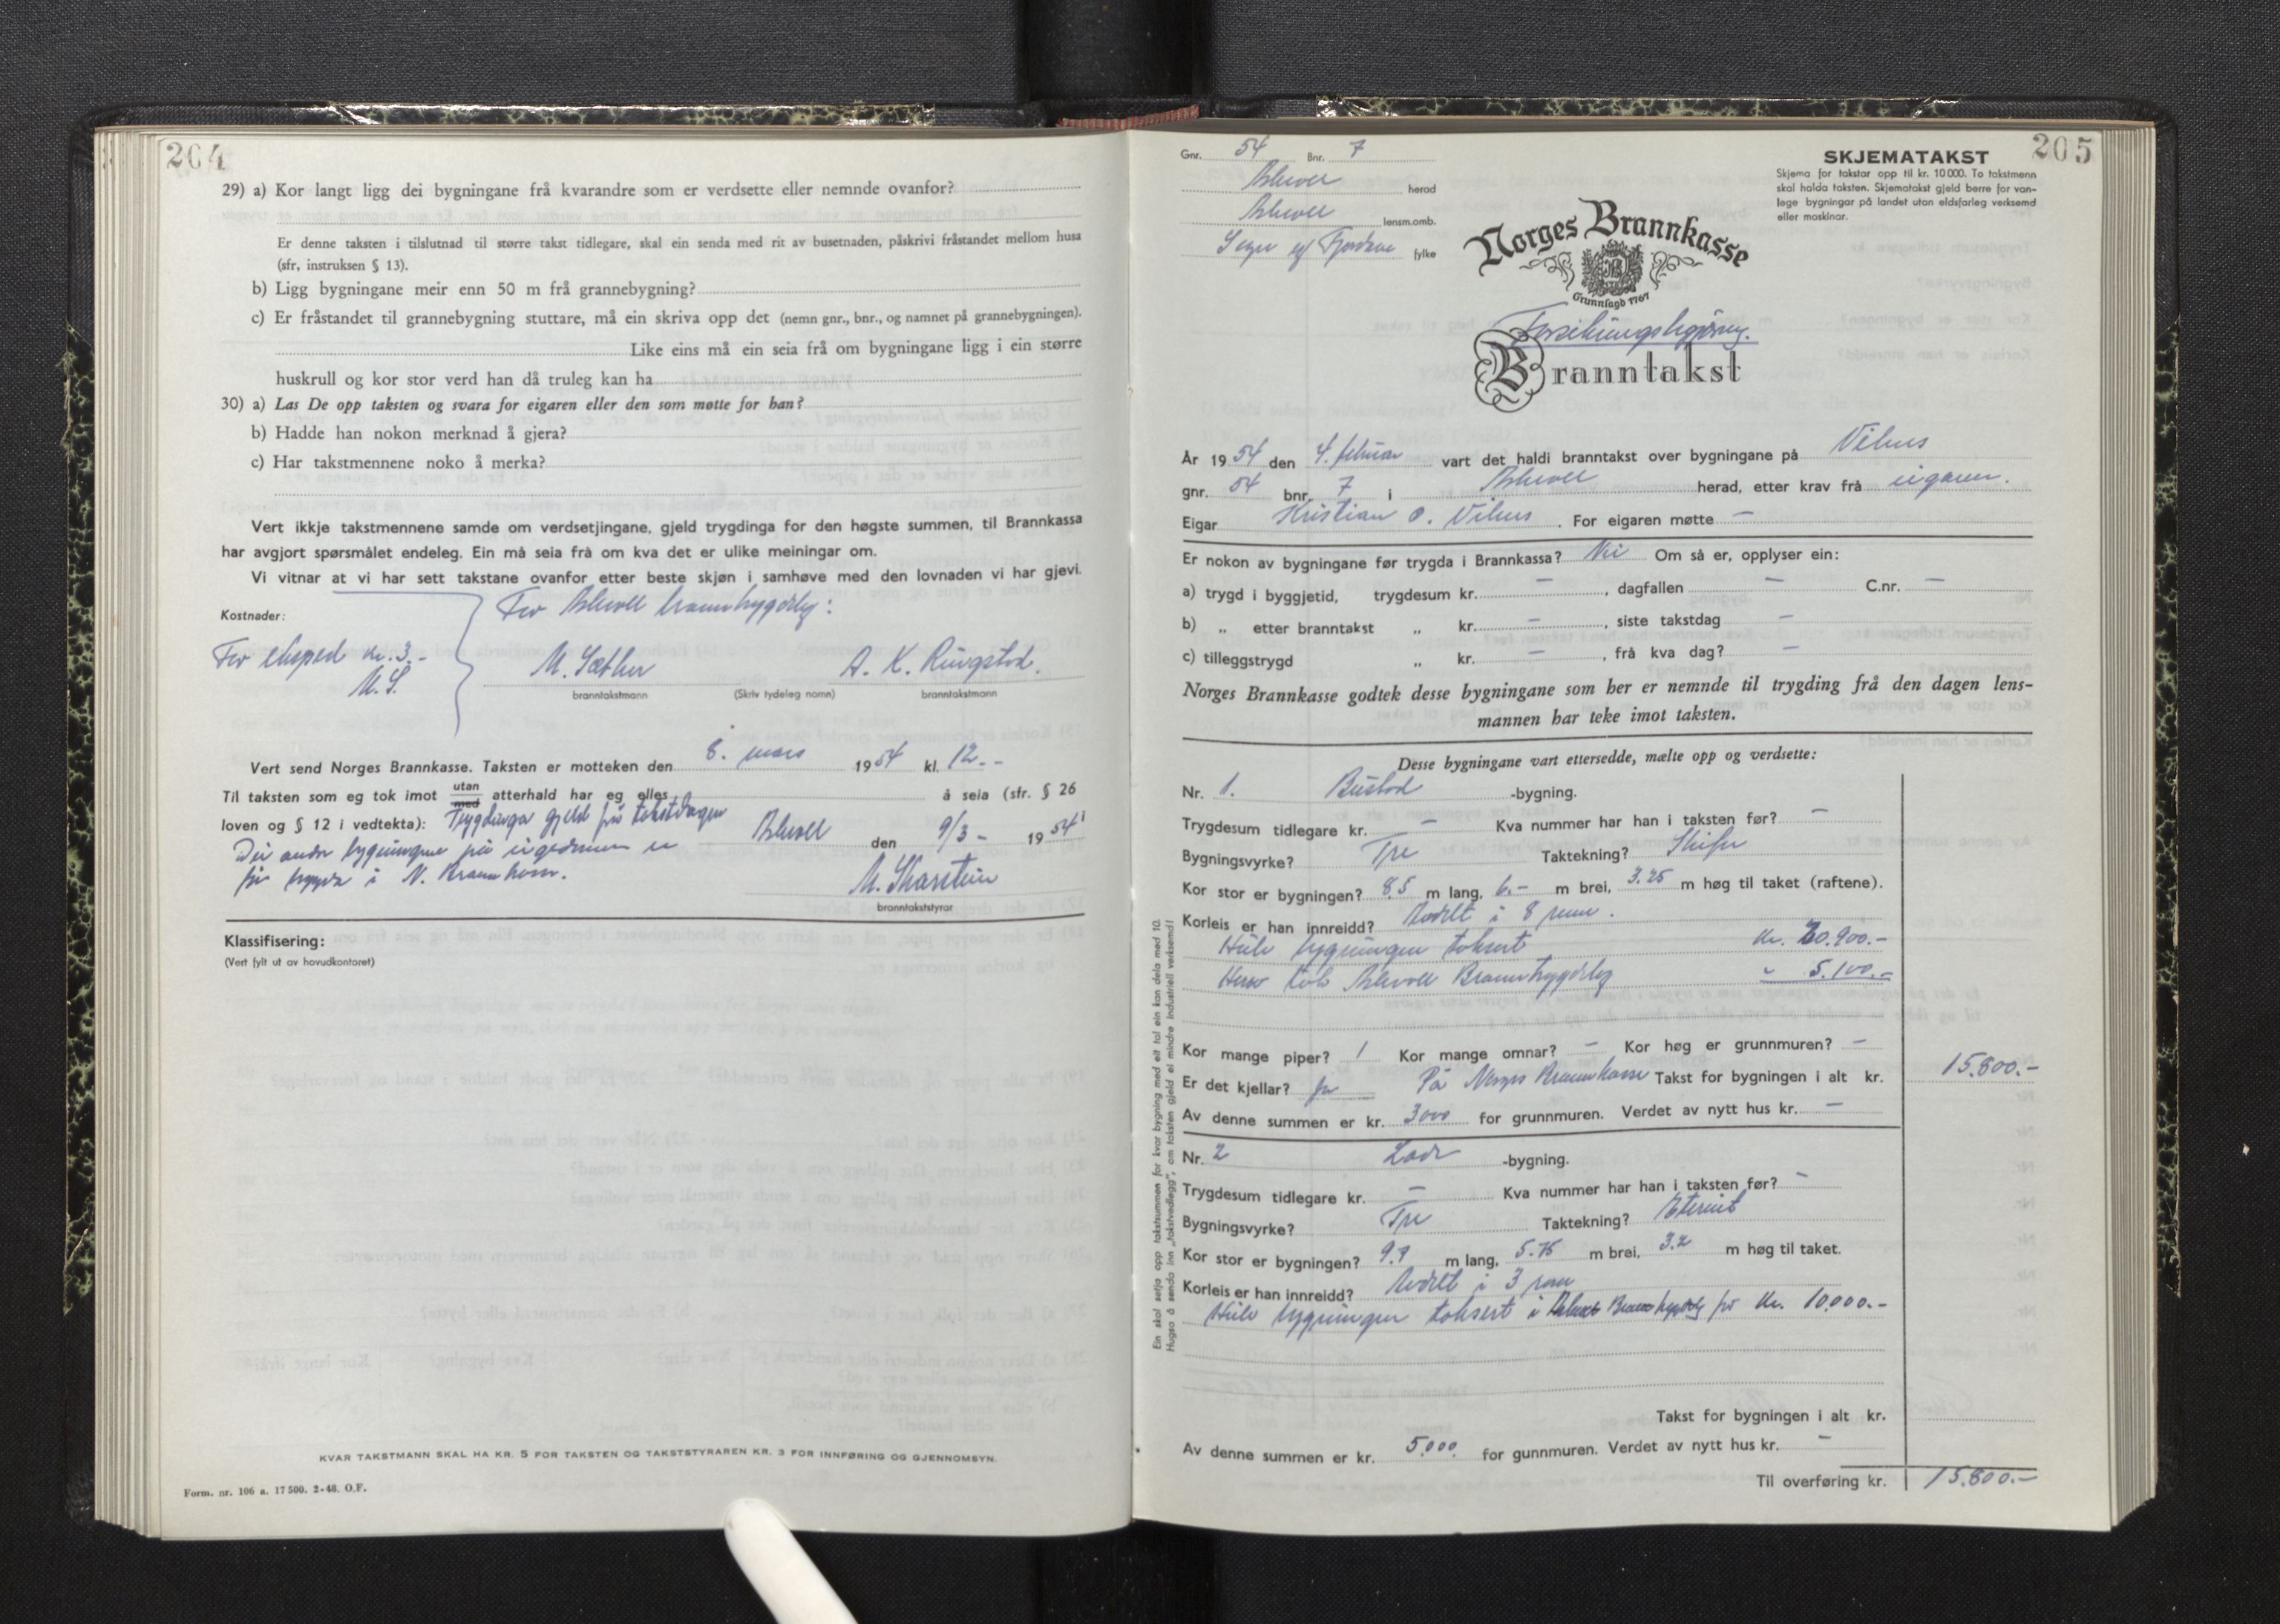 204
29) a) Kor langt ligg dei bygningane frå kvarandre som er verdsette eller nemnde ovanfor?
Er denne taksten i tilslutnad til større takst tidlegare, skal ein senda med rit av busetnaden, påskrivi fråstandet mellom husa
(sfr, instruksen § 13).
b) Ligg bygningane meir enn 50 m frå grannebygning?
c) Er fråstandet til grannebygning stuttare, må ein skriva opp det (nemn gnr., bnr., og namnet på grannebygningen).
Like eins må ein seia frå om bygningane ligg i ein større
huskrull og kor stor verd han då truleg kan ha
30) a) Las De opp taksten og svara for eigaren eller den som møtte for han?
b) Hadde han nokon merknad å gjera?
c) Har takstmennene noko å merka?
Vert ikkje takstmennene samde om verdsetjingane, gjeld trygdinga for den høgste summen, til Brannkassa
har avgjort spørsmålet endeleg. Ein må seia frå om kva det er ulike meiningar om.
Vi vitnar at vi har sett takstane ovanfor etter beste skjøn i samhøve med den lovnaden vi har gjevi.
For Askvoll branntrygdelag:
Kostnader:
For eksped kr. 3.-
M. S.
M. Sæther A. K. Ringstad.
branntakstmann (Skriv tydeleg namn) branntakstmann
Vert send Norges Brannkasse. Taksten er motteken den 8. mars 1954 kl. 12.-
Til taksten som eg tok imot utan med atterhald har eg elles å seia (sfr. § 26
loven og § 12 i vedtekta): Trygdinga gjeld frå takstdagen
Askvoll den 9/3 - 1954
Dei andre bygningane på eigedomen er
før trygda i N. Brannkasse.
M. Skarstein
branntakststyrar
Klassifisering:
(Vert fylt ut av hovudkontoret)
KVAR TAKSTMANN SKAL HA KR. 5 FOR TAKSTEN OG TAKSTSTYRAREN KR. 3 FOR INNFØRING OG GJENNOMSYN.
Form. nr. 106 a. 17 500. 2-48. O.F.
205
Gnr. 54 Bnr. 7
Askvoll herad
Askvoll lensm.omb.
Sogn og Fjordane fylke
SKJEMATAKST
Skjema for takstar opp til kr. 10 000. To takstmenn
skal halda taksten. Skjematakst gjeld berre for van-
lege bygningar på landet utan eldsfarleg verksemd
eller maskinar.
Norges Brannkasse
Grunnlagd 1767
Branntakst
År 1954 den 4. februar vart det haldi branntakst over bygningane på Vilnes
gnr. 54 bnr. 7 i Askvoll herad, etter krav frå eigaren.
Eigar Kristian O. Vilnes. For eigaren møtte -
Er nokon av bygningane før trygda i Brannkassa? Nei Om så er, opplyser ein:
a) trygd i byggjetid, trygdesum kr. - , dagfallen - C.nr. -
b) „ etter branntakst „ kr. - , siste takstdag -
c) tilleggstrygd „ kr. - , frå kva dag? -
Norges Brannkasse godtek desse bygningane som her er nemnde til trygding frå den dagen lens-
mannen har teke imot taksten.
Desse bygningane vart ettersedde, mælte opp og verdsette:
Nr. 1. Bustad -bygning.
Trygdesum tidlegare kr. - Kva nummer har han i taksten før? -
Bygningsvyrke? Tre Taktekning? Skifer
Kor stor er bygningen? 8,5 m lang, 6.- m brei, 3.25 m høg til taket (raftene).
Korleis er han innreidd? Avdelt i 8 rom.
Heile bygningen taksert kr. 20.900.-
Herav Askvoll Branntrygdelag " 5.100.-
Kor mange piper? 1 Kor mange omnar? - Kor høg er grunnmuren? -
Er det kjellar? ja På Norges Brannkasse Takst for bygningen i alt kr. 15.800.-
Av denne summen er kr. 3000 for grunnmuren. Verdet av nytt hus kr. -
Nr. 2 -bygning.
Trygdesum tidlegare kr. - Kva nummer har han i taksten før? -
Bygningsvyrke? Tre Taktekning? Eternit
Kor stor er bygningen? 9.9 m lang, 5.75 m brei, 3.2 m høg til taket.
Korleis er han innreidd? Avdelt i 3 rom
Heile bygningen taksert i Askvoll Branntrygdelag for kr. 10.000.-
Takst for bygningen i alt kr.
Av denne summen er kr. 5.000. for gunnmuren. Verdet av nytt hus kr. -
Til overføring kr. 15.800.-
Ein skal setja opp takstsummen for kvar bygning med eit tal ein kan dela med 10.
Hugsa å senda inn „takstvedlegg”, om taksten gjeld ei mindre industriell verksemd!